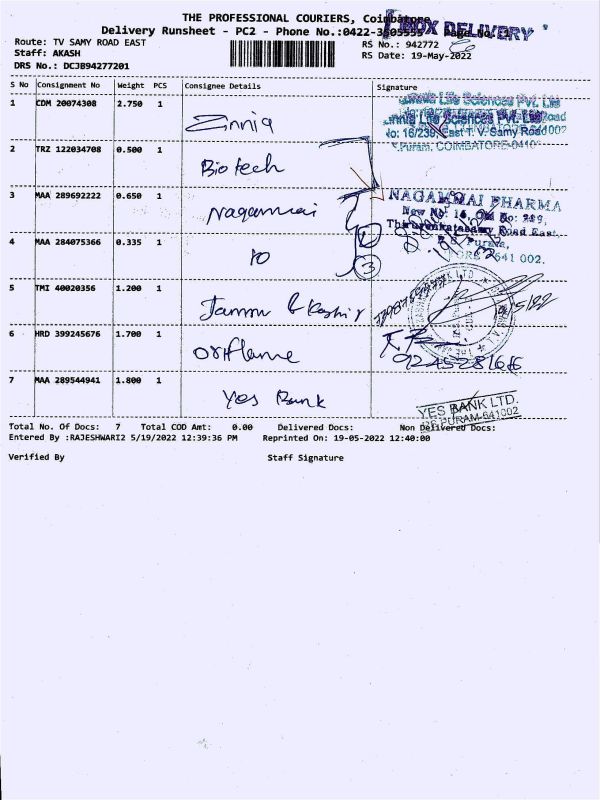 THE PROFESSIONAL COURIERS, Coimbatore
BOX DELIVERY
Delivery Runsheet - PC2 - Phone No.:0422-3505555 Page No. 1
Route: TV SAMY ROAD EAST
RS No.: 942772
Staff: AKASH
RS Date: 19-May-2022
DRS No.: DCJB94277201
S No Consignment No Weight PCS Consignee Details Signature
1 CDM 20074308 2.750 1 Zinnia
Life Sciences Pvt. Ltd
Life Sciences Pvt. Ltd
No: 16/239, East T. V. Samy Road
R.S.Puram, COIMBATORE
2 TRZ 122034708 0.500 1 Biotech
3 MAA 289692222 0.650 1 Nagammai
NAGAMMAI PHARMA
New No: 16, Old No: 239,
Thiruvenkatasamy Road East,
R.S. Puram,
641 002.
4 MAA 284075366 0.335 1 10
3
5 TMI 40020356 1.200 1 Jammu & Kashir
6 HRD 399245676 1.700 1 oriflame
7 MAA 289544941 1.800 1 Yes Bank
YES BANK LTD.
RS PURAM-641002
Total No. Of Docs: 7 Total COD Amt: 0.00 Delivered Docs: Non Delivered Docs:
Entered By :RAJESHWARI2 5/19/2022 12:39:36 PM Reprinted On: 19-05-2022 12:40:00
Verified By Staff Signature